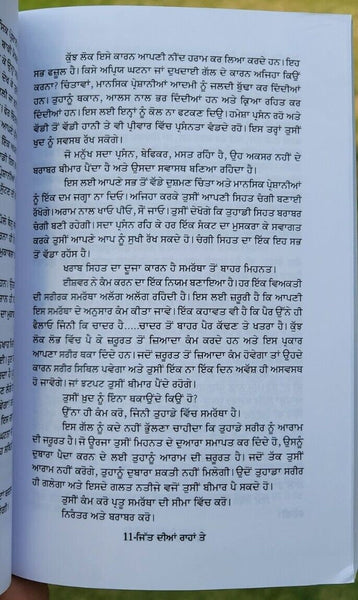 ਕੁੱਝ ਲੋਕ ਇਸੇ ਕਾਰਨ ਆਪਣੀ ਨੀਂਦ ਹਰਾਮ ਕਰ ਲਿਆ ਕਰਦੇ ਹਨ। ਇਹ
ਸਭ ਫਜ਼ੂਲ ਹੈ। ਕਿਸੇ ਅਪ੍ਰਿਯ ਘਟਨਾ ਜਾਂ ਦੁਖਦਾਈ ਗੱਲ ਦੇ ਕਾਰਨ ਅਜਿਹਾ ਕਿਉਂ
ਕਰਨਾ? ਚਿੰਤਾਵਾਂ, ਮਾਨਸਿਕ ਪ੍ਰੇਸ਼ਾਨੀਆਂ ਆਦਮੀ ਨੂੰ ਜਲਦੀ ਬੁੱਢਾ ਕਰ ਦਿੰਦੀਆਂ
ਹਨ। ਤੁਹਾਨੂੰ ਥਕਾਨ, ਆਲਸ ਨਾਲ ਭਰ ਦਿੰਦੀਆਂ ਹਨ ਅਤੇ ਕ੍ਰਿਆ ਰਹਿਤ ਕਰ
ਦਿੰਦੀਆਂ ਹਨ। ਇਸ ਲਈ ਇਨ੍ਹਾਂ ਨੂੰ ਕੋਲ ਨਾ ਫਟਕਣ ਦਿਉ। ਹਮੇਸ਼ਾ ਪ੍ਰਸੰਨ ਰਹੋ ਅਤੇ
ਵੱਡੀ ਤੋਂ ਵੱਡੀ ਹਾਨੀ ਤੇ ਵੀ ਪ੍ਰੀਵਾਰ ਵਿੱਚ ਪ੍ਰਸੰਨਤਾ ਵੇਡਦੇ ਰਹੋ। ਇਸ ਤਰ੍ਹਾਂ ਤੁਸੀਂ
ਖੁਦ ਨੂੰ ਸਵਸਥ ਰੱਖ ਸਕੋਗੇ।
ਜੋ ਮਨੁੱਖ ਸਦਾ ਪ੍ਰਸੰਨ, ਬੇਫਿਕਰ, ਮਸਤ ਰਹਿੰਾ ਹੈ, ਉਹ ਅਕਸਰ ਨਹੀਂ ਦੇ
ਬਰਾਬਰ ਬੀਮਾਰ ਪੈਂਦਾ ਹੈ ਅਤੇ ਉਸਦਾ ਸਵਾਸਥ ਬਣਿਆ ਰਹਿੰਦਾ ਹੈ।
ਇਸ ਲਈ ਆਪਣੇ ਸਭ ਤੋਂ ਵੱਡੇ ਦੁਸ਼ਮਣ ਚਿੰਤਾ ਅਤੇ ਮਾਨਸਿਕ ਪ੍ਰੇਸ਼ਾਨੀਆਂ
ਨੂੰ ਇੱਕ ਦਮ ਜਗ੍ਹਾ ਨਾ ਦਿਓ। ਅਜਿਹਾ ਕਰਕੇ ਤੁਸੀਂ ਆਪਣੀ ਸਿਹਤ ਚੰਗੀ ਬਣਾਈ
ਰੱਖੋਗੇ। ਅਰਾਮ ਨਾਲ ਖਾਓ ਪੀਓ, ਸੌਂ ਜਾਓ। ਤੁਸੀਂ ਦੇਖੋਗੇ ਕਿ ਤੁਹਾਡੀ ਸਿਹਤ ਬਰਾਬਰ
ਚੰਗੀ ਬਣੀ ਰਹੇਗੀ। ਸਦਾ ਪ੍ਰਸੰਨ ਰਹਿ ਕੇ ਹਰ ਇੱਕ ਸੰਕਟ ਦਾ ਮੁਸਕਰਾ ਕੇ ਸਵਾਗਤ
ਕਰਕੇ ਤੁਸੀਂ ਆਪਣੇ ਆਪ ਨੂੰ ਸੁਖੀ ਰੱਖ ਸਕਦੇ ਹੋ। ਚੰਗੀ ਸਿਹਤ ਦਾ ਇੱਕ ਇਹ ਸਭ
ਤੋਂ ਵੱਡਾ ਰਹੱਸ ਹੈ।
ਖਰਾਬ ਸਿਹਤ ਦਾ ਦੂਜਾ ਕਾਰਨ ਹੈ ਸਮਰੱਥਾ ਤੋਂ ਬਾਹਰ ਮਿਹਨਤ।
ਈਸ਼ਵਰ ਨੇ ਕੰਮ ਕਰਨ ਦਾ ਇੱਕ ਨਿਯਮ ਬਣਾਇਆ ਹੈ। ਹਰ ਇੱਕ ਵਿਅਕਤੀ
ਦੀ ਸਰੀਰਕ ਸਮਰੱਥਾ ਅਲੱਗ ਅਲੱਗ ਰਹਿੰਦੀ ਹੈ। ਇਸ ਲਈ ਜ਼ਰੂਰੀ ਹੈ ਕਿ ਆਪਣੀ
ਇਸ ਸਮਰੱਥਾ ਦੇ ਅਨੁਸਾਰ ਕੰਮ ਕੀਤਾ ਜਾਵੇ। ਇੱਕ ਕਹਾਵਤ ਵੀ ਹੈ ਕਿ ਪੈਰ ਓਨੇ ਹੀ
ਫੈਲਾਓ ਜਿੰਨੀ ਕਿ ਚਾਦਰ ਹੈ.....ਚਾਦਰ ਤੋਂ ਬਾਹਰ ਪੈਰ ਕੱਢਣ ਤੇ ਖਤਰਾ ਹੈ। ਕੁੱਝ
ਲੋਕ ਲੋਭ ਵਿੱਚ ਪੈ ਕੇ ਜ਼ਰੂਰਤ ਤੋਂ ਜ਼ਿਆਦਾ ਕੰਮ ਕਰਦੇ ਹਨ ਅਤੇ ਇਸ ਪ੍ਰਕਾਰ
ਆਪਣਾ ਸਰੀਰ ਥਕਾ ਦਿੰਦਾ ਹਨ। ਜਦੋਂ ਜ਼ਰੂਰਤ ਤੋਂ ਜ਼ਿਆਦਾ ਕੰਮ ਹੋਵੇਗਾ ਤਾਂ ਉਹਦੇ
ਕਾਰਨ ਸਰੀਰ ਸਿਥਿਲ ਪਵੇਗਾ ਅਤੇ ਤੁਸੀਂ ਇੱਕ ਨਾ ਇੱਕ ਦਿਨ ਅਵੱਸ਼ ਹੀ ਅਸਵਸਥ
ਹੋ ਜਾਵੋਗੇ। ਜਾਂ ਝਟਪਟ ਤੁਸੀਂ ਬੀਮਾਰ ਪੈਂਦੇ ਰਹੋਗੇ।
ਤੁਸੀਂ ਖੁਦ ਨੂੰ ਇਨਾ ਥਕਾਉਂਦੇ ਕਿਉਂ ਹੋ?
ਉੱਨਾ ਹੀ ਕੰਮ ਕਰੋ, ਜਿੰਨੀ ਤੁਹਾਡੇ ਵਿੱਚ ਸਮਰੱਥਾ ਹੈ।
ਇਸ ਗੱਲ ਨੂੰ ਕਦੇ ਨਹੀਂ ਭੁੱਲਣਾ ਚਾਹੀਦਾ ਕਿ ਤੁਹਾਡੇ ਸਰੀਰ ਨੂੰ ਆਰਾਮ
ਦੀ ਜਰੂਰਤ ਹੈ। ਜੋ ਊਰਜਾ ਤੁਸੀਂ ਮਿਹਨਤ ਦੇ ਦੁਆਰਾ ਸਮਾਪਤ ਕਰ ਦਿੰਦੇ ਹੋ, ਉਸਨੂੰ
ਦੁਬਾਰਾ ਪੈਦਾ ਕਰਨ ਦੇ ਲਈ ਤੁਹਾਨੂੰ ਆਰਾਮ ਦੀ ਜ਼ਰੂਰਤ ਹੈ। ਜਦੋਂ ਤੱਕ ਤੁਸੀਂ
ਆਰਾਮ ਨਹੀਂ ਕਰੋਗੇ, ਤੁਹਾਨੂੰ ਦੁਬਾਰਾ ਸ਼ਕਤੀ ਨਹੀਂ ਮਿਲੇਗੀ। ਉਦੋਂ ਤੁਹਾਡਾ ਸਰੀਰ
ਹੀ ਗਲੇਗਾ ਅਤੇ ਇਸਦੇ ਗਲਤ ਨਤੀਜੇ ਵਜੋਂ ਤੁਸੀਂ ਬੀਮਾਰ ਪੈ ਸਕਦੇ ਹੋ।
ਤੁਸੀਂ ਕੰਮ ਕਰੋ ਪ੍ਰੰਤੂ ਸਮਰੱਥਾ ਦੀ ਸੀਮਾ ਵਿੱਚ ਕਰੋ।
ਨਿਰੰਤਰ ਅਤੇ ਬਰਾਬਰ ਕਰੋ।
11-ਜਿੱਤ ਦੀਆਂ ਰਾਹਾਂ ਤੇ